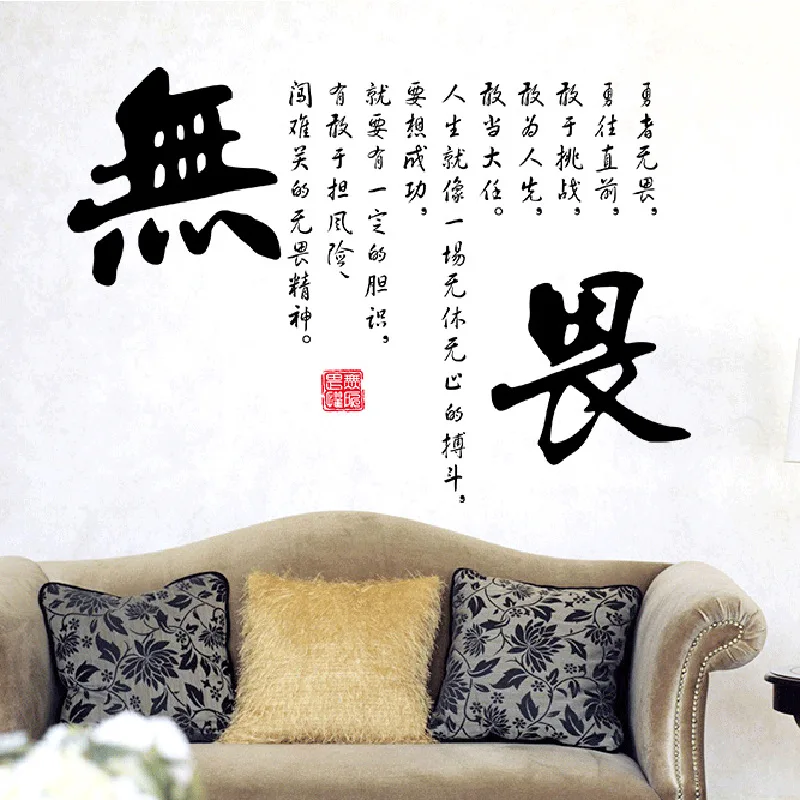 無
畏
勇者无畏，
勇往直前，
敢于挑战，
敢为人先，
敢当大任。
人生就像一場无休无止的搏斗，
要想成功，
就要有一定的胆识，
有敢于担风险、
闯难关的无畏精神。